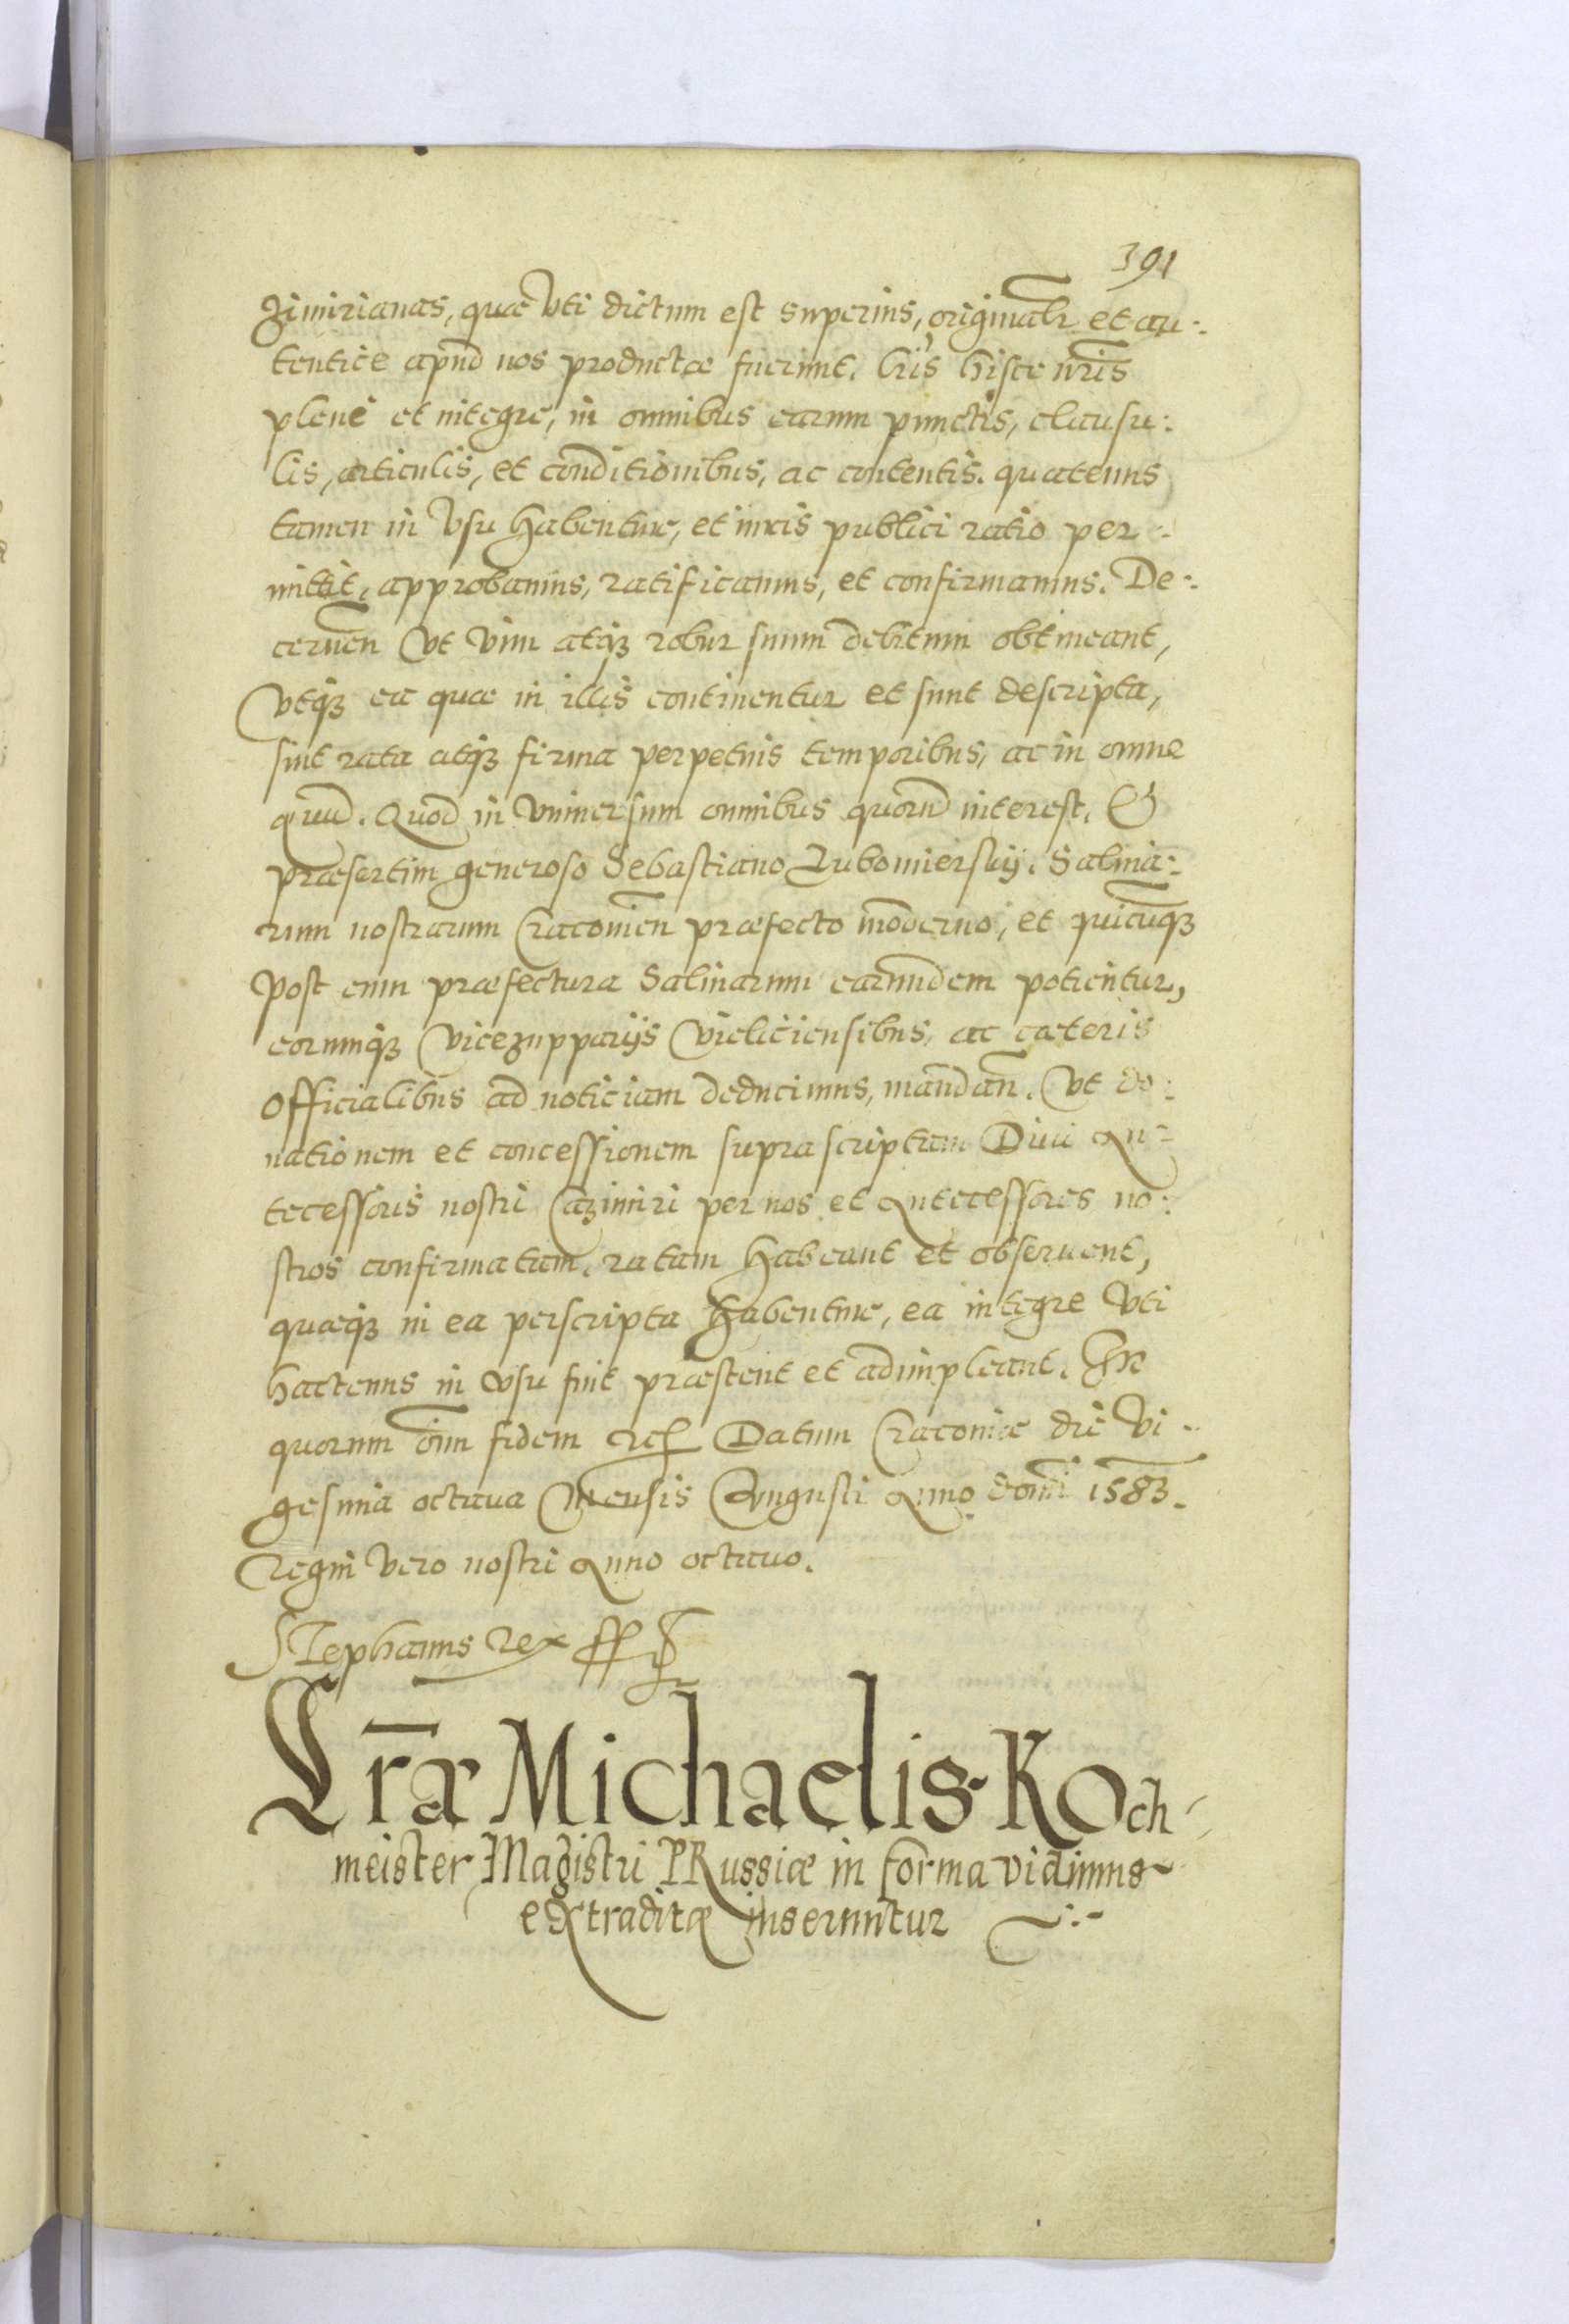 391
zimirianas, quæ vti dictum est superius, originalr et au-:
tentice apud nos productæ fuerunt. lris hisce nris
plene et integre, in omnibus earum punctis, clausu:
lis, articulis, et conditionibus, ac contentis. quatenus
tamen in vsu habentur, et iuris publici ratio per-:
mittit, approbamus, ratificamus, et confirmamus. De-:
cernen vt vim atq3 robur suum debitum obtineant,
vtq3 ea quæ in illis continentur et sunt descripta,
sint rata atq3 firma perpetuis temporibus, ac in omne
æuum. Quod in vniuersum omnibus quorum interest. Et
præsertim generoso Sebastiano Lubomierskij. Salina-:
rum nostrarum Cracouien præfecto moderno, et quicunq3
post eum præfectura Salinarum earumdem potientur,
eorumq3 vicezuppariis vieliciensibus, ac cæteris
Officialibus ad noticiam deducimus, mandan. Vt do:
nationem et concessionem suprascriptam Diui An-:
tecessoris nostri Cazimiri per nos et Antecessores no:
stros confirmatam, ratam habeant et obseruent,
quæq3 in ea perscripta habentur, ea integre vti
hactenus in vsu fuit præstent et adimpleant. In
quorum om̄m fidem etc̄ Datum Cracouiæ die vi-
gesima octaua Mensis Augusti Anno domi 1583.
Regni vero nostri Anno octauo.
Stephanus Rex ss
Lr̄æ Michaelis Koch-
meister Magistri PRussiæ in forma vidimus
extraditæ inseruntur